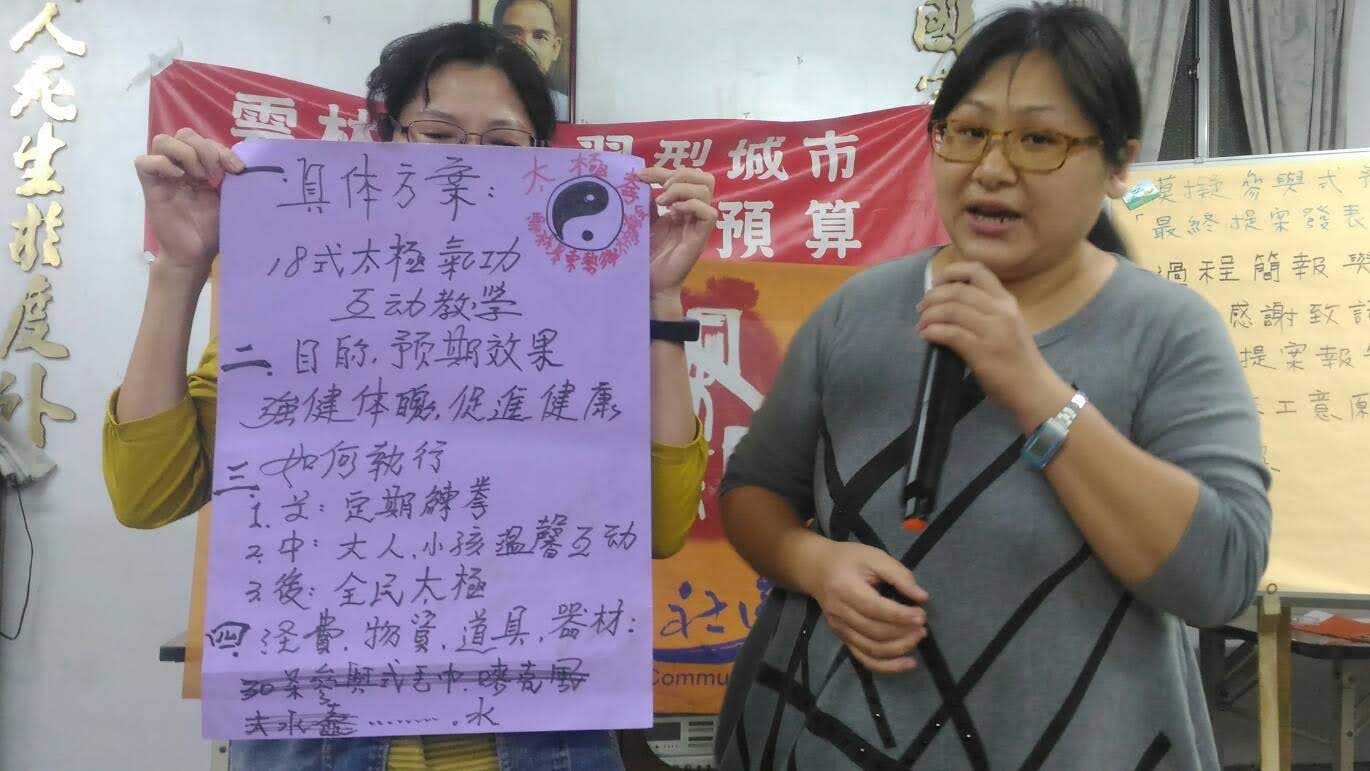 人死生非度外
國
雲林 習型城市
預算
一.具体方案:
太極拳
18式太極氣功
互动教学
二.目的.预期效果
強健体魄.促進健康
三.如何執行
1.文:定期練拳
2.中:大人.小孩溫馨互动
3.後:全民太極
四.经費.物資.道具.器材:
30条參與式毛巾.麥克風
大水壺.........水
社
Commu
模擬參與式
「最終提案發表
過程簡報
感謝致
提案報
工意願